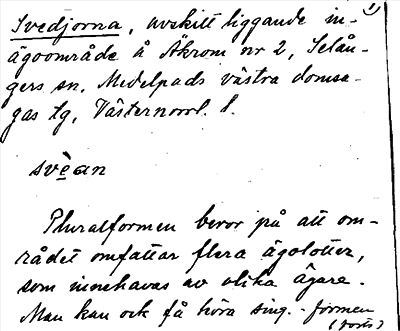 Svedjorna, avskilt liggande in-
ägoområde å Åkrom nr 2, Selån-
gers sn, Medelpads västra domsa-
gas tg, Västernorrl. l.
svèan
Pluralformen beror på att om-
rådet omfattar flera ägolotter,
som innehavas av olika ägare.
Man kan ock få höra sing.-formen
(forts)